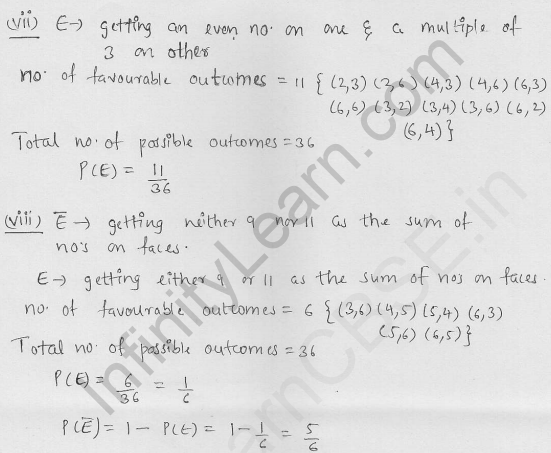 (vii) E→ getting an even no. on one & a multiple of
3 on other
no. of favourable outcomes = 11 { (2,3) (2,6) (4,3) (4,6) (6,3)
(6,6) (3,2) (3,4) (3,6) (6,2)
(6,4) }
Total no. of possible outcomes = 36
P(E) = 11/36
(viii) E̅ → getting neither 9 nor 11 as the sum of
no's on faces.
E→ getting either 9 or 11 as the sum of nos on faces.
no. of favourable outcomes = 6 { (3,6) (4,5) (5,4) (6,3)
(5,6) (6,5) }
Total no. of possible outcomes = 36
P(E) = 6/36 = 1/6
P(E̅) = 1 - P(E) = 1 - 1/6 = 5/6
InfinityLearn.com
LearnCBSE.in